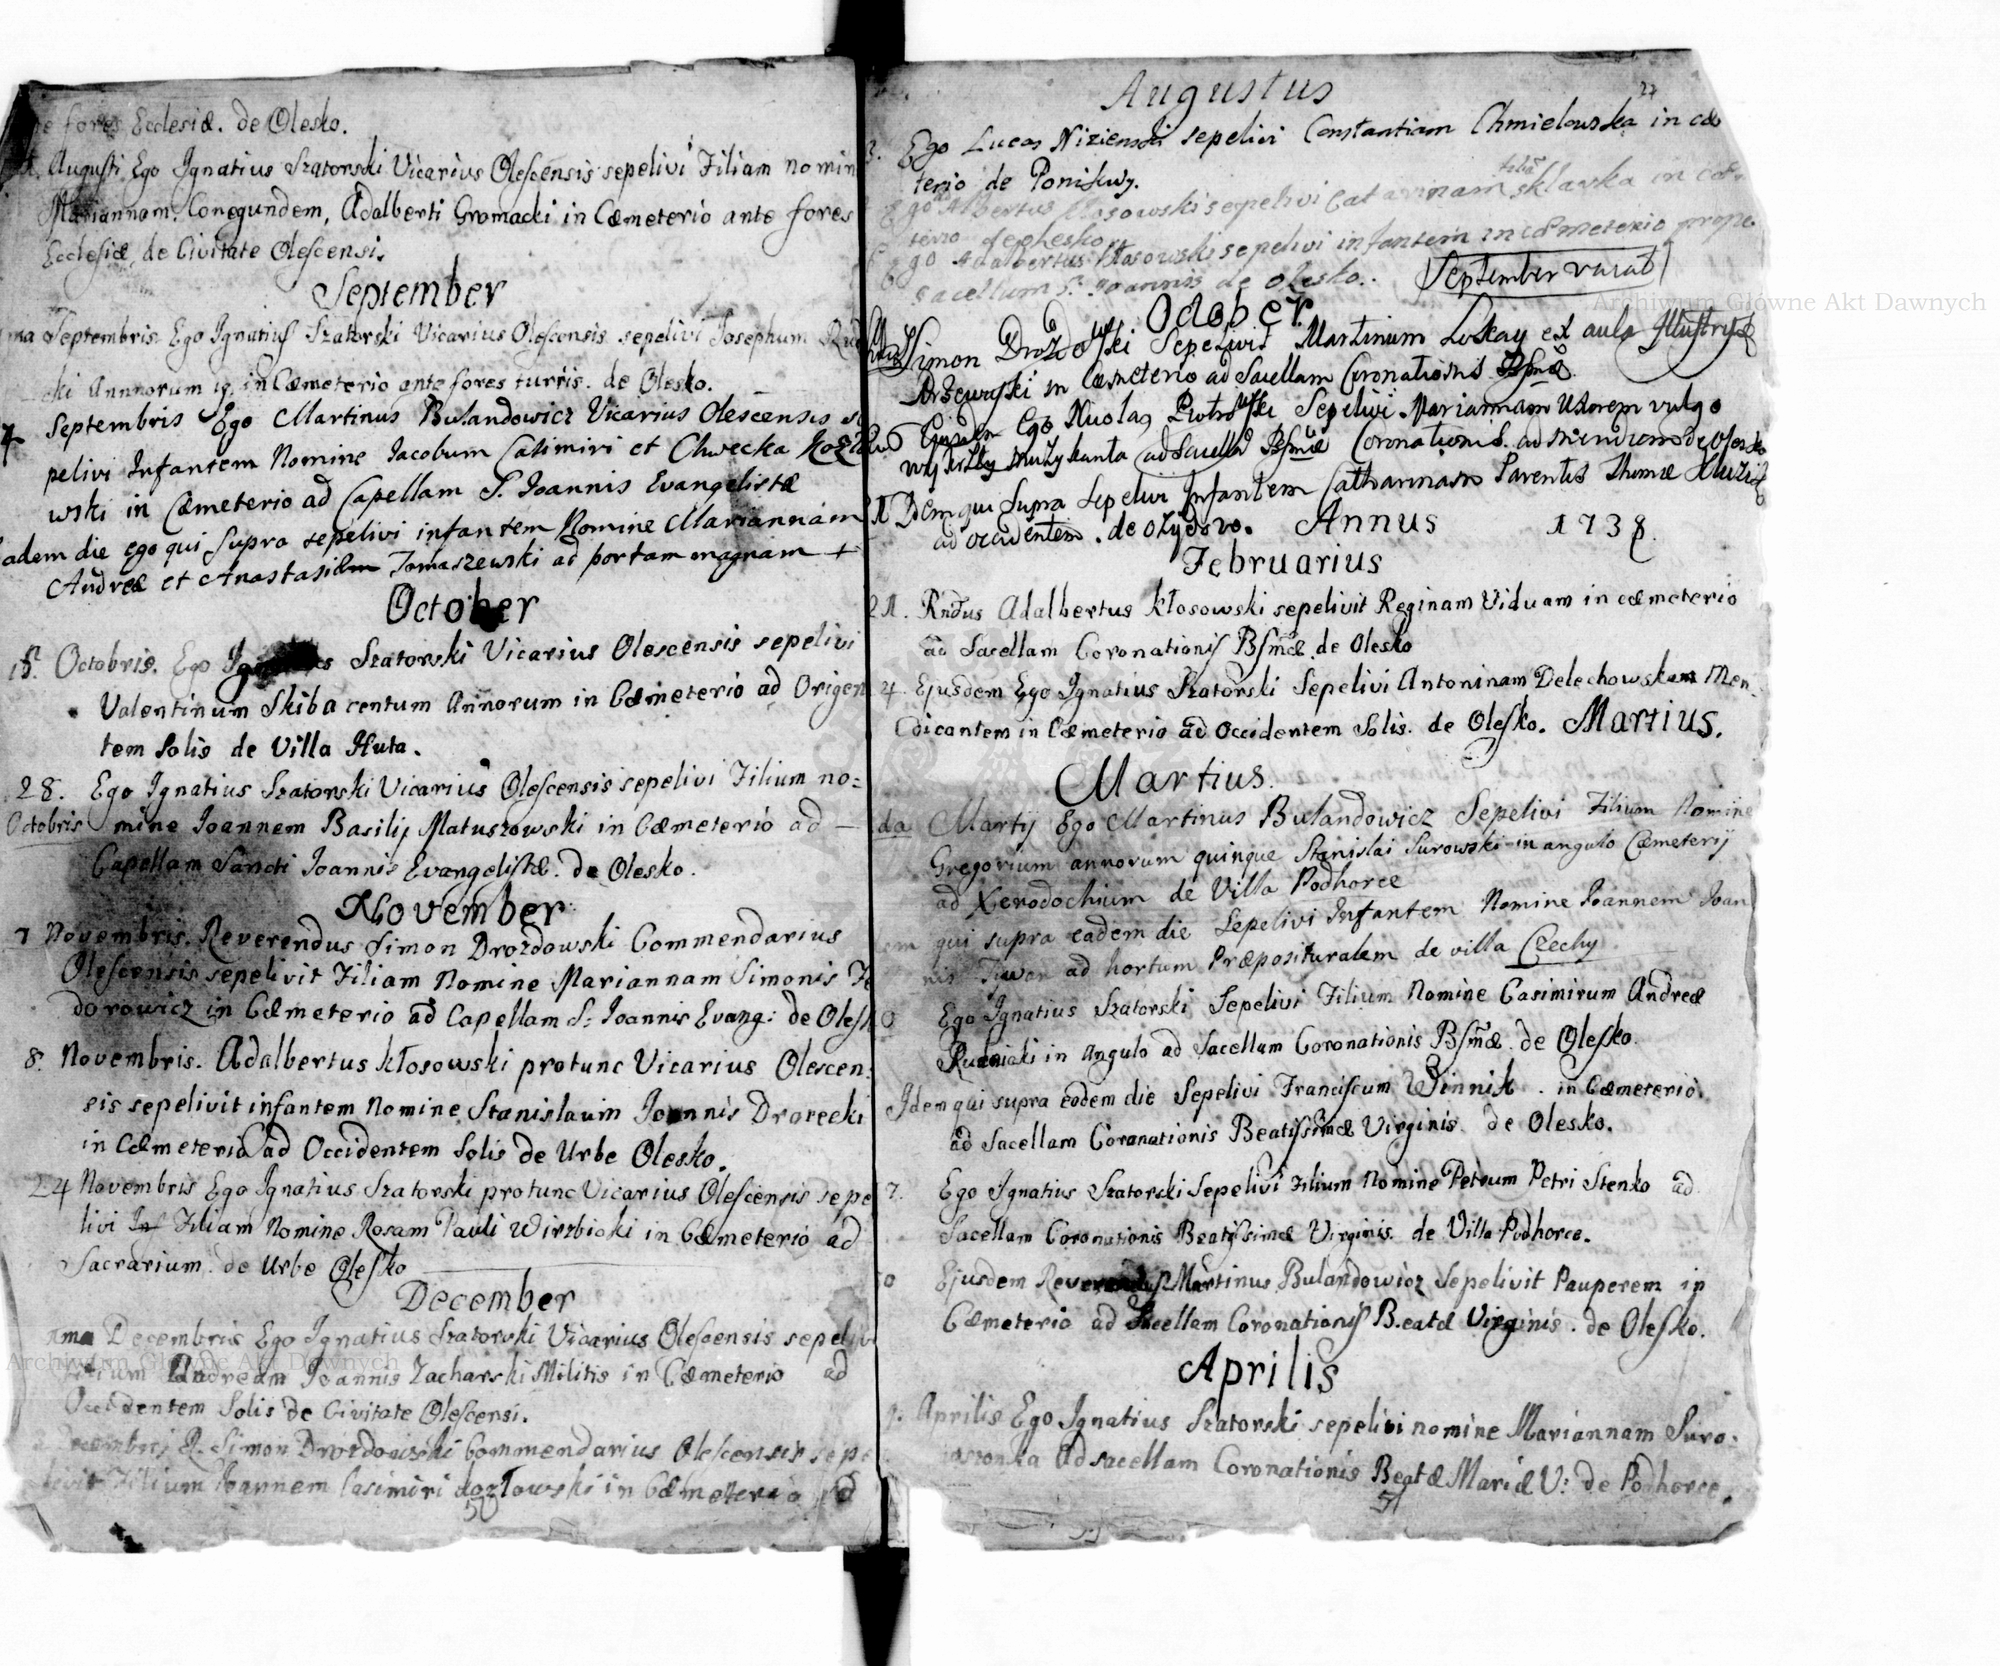 fores Ecclesiæ. de Olesko.
Augusti Ego Ignatius Szatorski Vicarius Olescensis sepelivi Filiam nomin
Mariannam. Conegundem, Adalberti Gromacki in Cæmeterio ante fores
Ecclesiæ, de Civitate Olescensi.
September
ma Septembris Ego Ignatius Szatorski Vicarius Olescensis sepelivi Josephum
cki Annorum 19. in Cæmeterio ante fores turris. de Olesko.
7 Septembris Ego Martinus Bulandowicz Vicarius Olescensis se
pelivi Infantem Nomine Jacobum Casimiri et Chwecka
wski in Cæmeterio ad Capellam S. Joannis Evangelistæ
adem die ego qui supra sepelivi infantem Nomine Mariannam
Andreæ et Anastasiæ Tomaszewski ad portam magnam +
October
Octobris. Ego Szatorski Vicarius Olescensis sepelivi
Valentinum Skiba centum Annorum in Cæmeterio ad Origen
tem Solis de Villa Huta.
28. Ego Ignatius Szatorski Vicarius Olescensis sepelivi Filium no=
Octobris mine Joannem Basilij Matuszowski in Cæmeterio ad —
Capellam Sancti Joannis Evangelistæ. de Olesko.
November
7 Novembris. Reverendus Simon Drozdowski Commendarius
Olescensis sepelivit Filiam Nomine Mariannam Simonis
dorowicz in Cæmeterio ad Capellam S: Joannis Evang: de Olesk
8. Novembris. Adalbertus Kłosowski protunc Vicarius Olescen
sis sepelivit infantem Nomine Stanislaum Joannis Drorecki
in Cæmeterio ad Occidentem Solis de Urbe Olesko.
24 Novembris Ego Ignatius Szatorski protunc Vicarius Olescensis sepe
livi Inf Filiam Nomine Rosam Pauli Wirzbicki in Cæmeterio ad
Sacrarium. de Urbe Olesko
December
ma Decembris Ego Ignatius Szatorski Vicarius Olescensis sepelivi
Andream Joannis Zacharski Militis in Cæmeterio ad
Occidentem Solis de Civitate Olescensi.
Decembris R. Simon Drozdowski Commendarius Olescensis sepe
livit Filium Joannem Casimiri Kozłowski in Cæmeterio ad
50
Augustus
27
3. Ego Lucas Nizienski sepelivi Constantiam Chmielowska in cæ
terio de Ponikwy.
Ego Albertus Kłosowski sepelivi Catarinam sklarka in
terio de Olesko
Ego Adalbertus Kłosowski sepelivi infantem in cæmeterio prope
sacellum S. Joannis de Olesko..
September vacat
October
Simon Drozdowski Sepelivit Martinum ex aula
Rzewuski in Cæmeterio ad Sacellum Coronationis Bssmæ
Ego Nicolas Piotrowski Sepelivi Mariannam Uxorem vulgo
Muzykanta ad Sacellū Bssmæ Coronationis. ad meridiem de Olesko
Idem qui Supra Sepelivi Infantem Catharinam Parentis Thomæ
ad occidentem. de Ożydow. Annus 1738.
Februarius
21. Rndus Adalbertus Kłosowski sepelivit Reginam Viduam in cæmeterio
ad Sacellam Coronationis Bssmæ. de Olesko
24. Ejusdem Ego Ignatius Szatorski Sepelivi Antoninam Delechowskam Men
dicantem in Cæmeterio ad Occidentem Solis. de Olesko. Martius.
Martius.
da Martij Ego Martinus Bulandowicz Sepelivi Filium Nomine
Gregorium annorum quinque Stanislai Surowski in angulo Cæmeterij
ad Xenodochium de Villa Podhorce
em qui supra eadem die Sepelivi Infantem Nomine Joannem Joan
nis ad hortum Præposituralem de villa Czechy
0 Ego Ignatius Szatorski Sepelivi Filium Nomine Casimirum Andreæ
Rudniaki in Angulo ad Sacellum Coronationis Bssmæ. de Olesko.
Idem qui supra eodem die Sepelivi Franciscum Winnik. in Cæmeterio
ad Sacellam Coronationis Beatissimæ Virginis. de Olesko.
7. Ego Ignatius Szatorski Sepelivi Filium Nomine Petrum Petri Stenko ad
Sacellam Coronationis Beatissimæ Virginis. de Villa Podhorce.
0 Ejusdem Reverendus Martinus Bulandowicz Sepelivit Pauperem in
Cæmeterio ad Sacellam Coronationis Beatæ Virginis. de Olesko.
Aprilis
Aprilis Ego Ignatius Szatorski sepelivi nomine Mariannam Suro
Ad sacellam Coronationis Beatæ Mariæ V: de Podhorce.
51
Archiwum Główne Akt Dawnych
Archiwum Główne Akt Dawnych